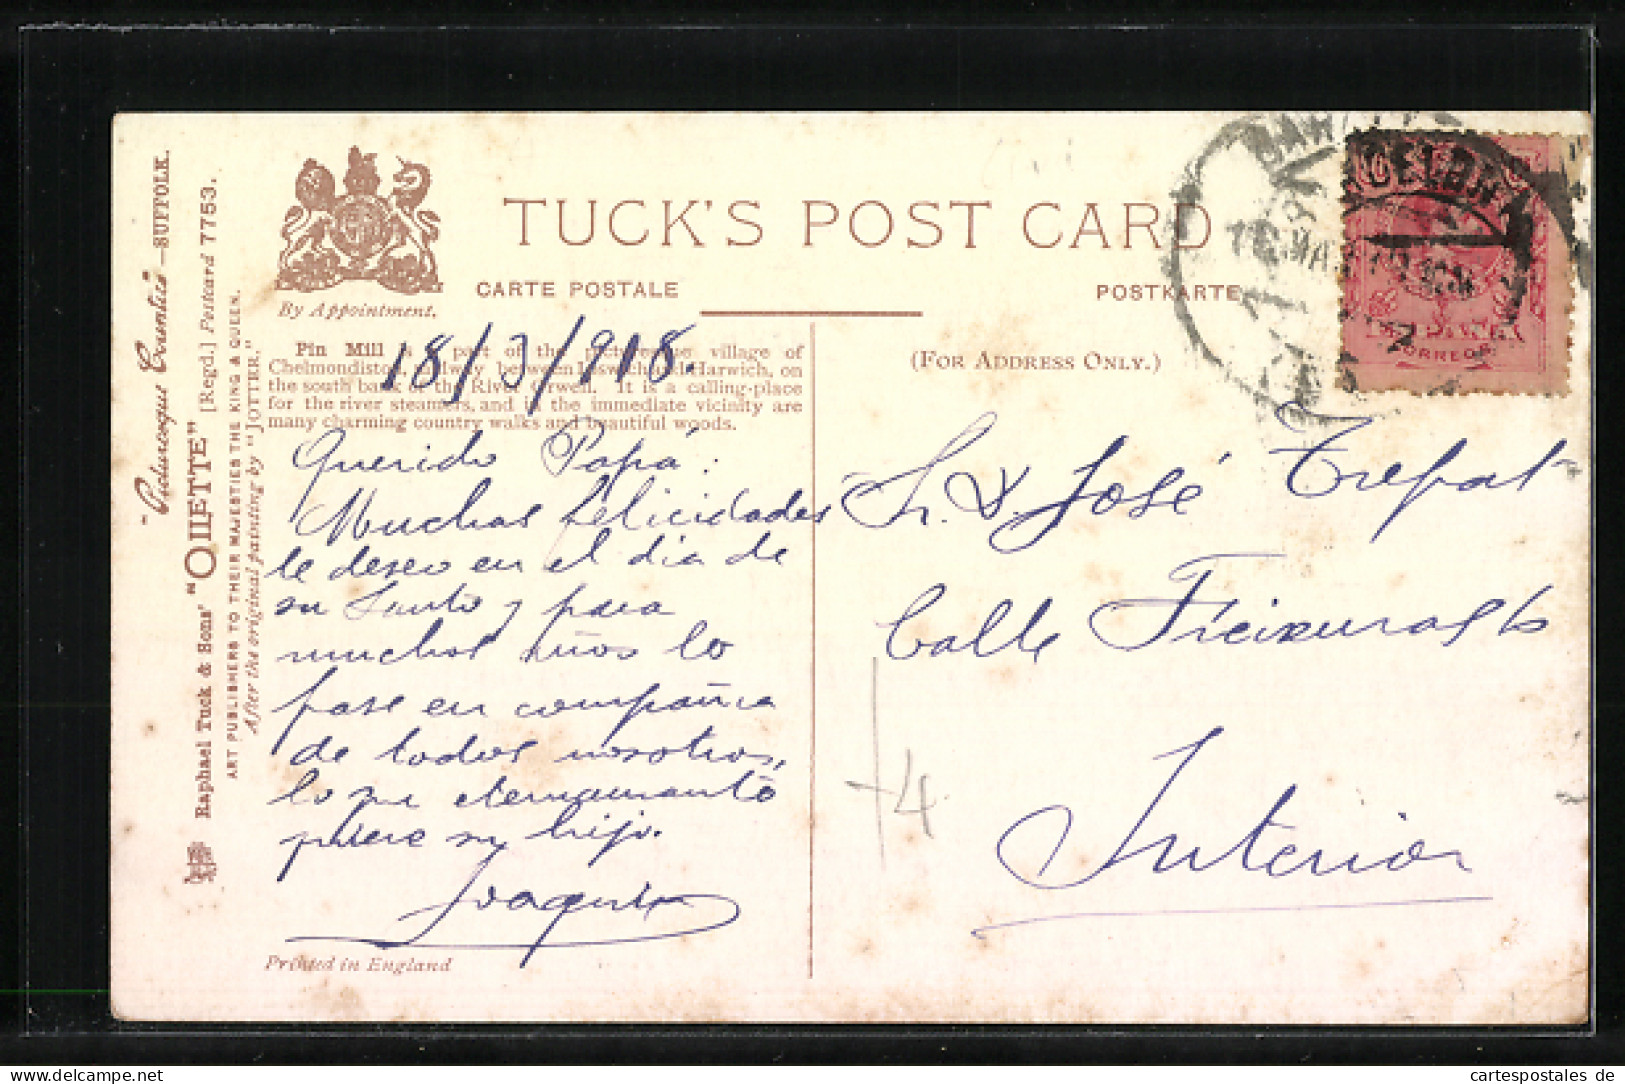 "Picturesque Counties"—SUFFOLK.
Raphael Tuck & Sons' "OILETTE" [Regd.] Postcard 7753.
ART PUBLISHERS TO THEIR MAJESTIES THE KING & QUEEN.
After the original painting by "JOTTER."
By Appointment.
TUCK'S POST CARD
CARTE POSTALE
POSTKARTE
(FOR ADDRESS ONLY.)
Pin Mill is a part of the picturesque village of
Chelmondiston, midway between Ipswich and Harwich, on
the south bank of the River Orwell. It is a calling-place
for the river steamers, and in the immediate vicinity are
many charming country walks and beautiful woods.
18/3/918
Querido Papá:
Muchas felicidades
le deseo en el dia de
su Santo y para
muchos años lo
pase en compañia
de todos nosotros,
lo que eternamante
quiere su hijo.
Joaquin
Printed in England
Sr. D. José Trepat
Calle Freixuras
Interior
+4
BARCELONA
CORREOS
cartespostales de